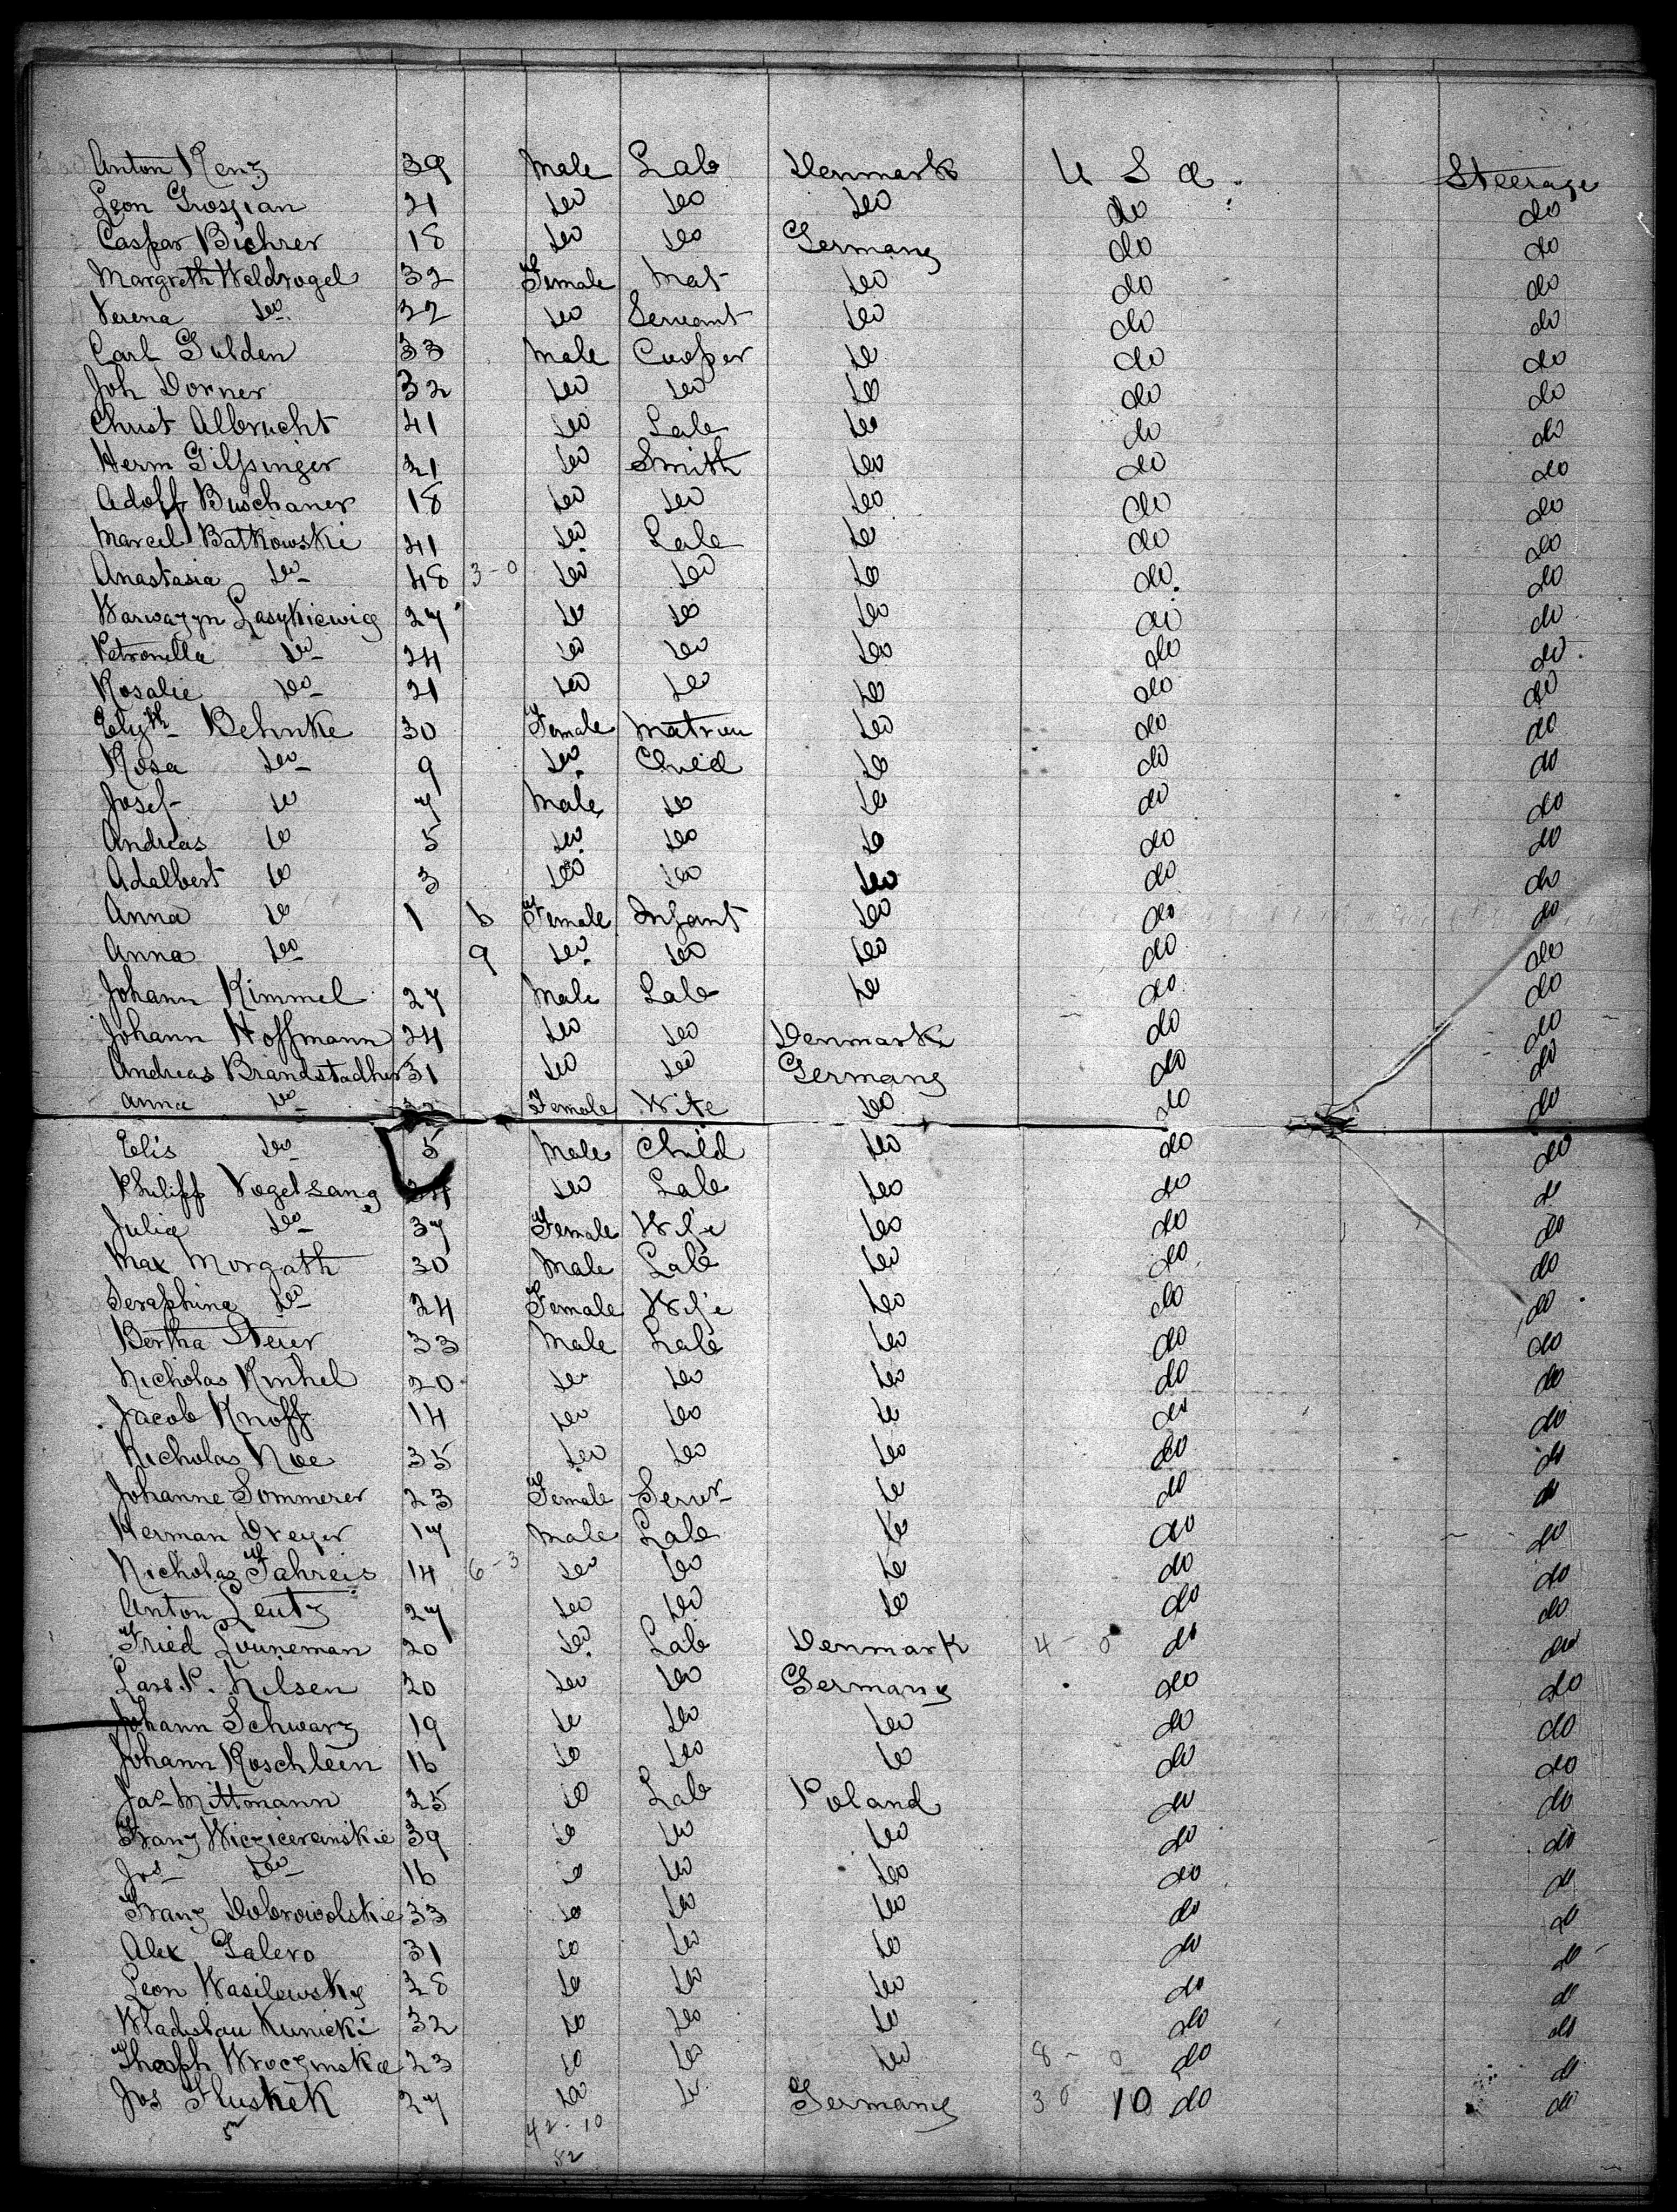 Anton Renz 39 Male Lab Denmark U S a. Steerage
Leon Grosjean 21 do do do do do
Caspar Bichrer 18 do do Germany do do
Margreth Waldvogel 32 Female Mat do do do
Verena do 22 do Servant do do do
Carl Gulden 33 Male Cooper do do do
Joh Dorner 32 do do do do do
Christ Albrucht 41 do Lab do do do
Herm Gilfsinger 21 do Smith do do do
Adolf Buschaner 18 do do do do do
Marcel Batkowski 41 do Lab do do do
Anastasia do 48 3-0 do do do do do
27 do do do do do
Petronella do 24 do do do do do
Rosalie do 21 do do do do do
Elizth Behnke 30 Female Matron do do do
Rosa do 9 do Child do do do
Josef do 7 Male do do do do
Andreas do 5 do do do do do
Adalbert do 3 do do do do do
Anna do 1 6 Female Infant do do do
Anna do 9 do do do do do
Johann Kimmel 27 Male Lab do do do
Johann Hoffmann 24 do do Denmark do do
Andreas Brandstadher 31 do do Germany do do
Anna do Female Wife do do do
Elis do 5 Male Child do do do
Philipp Vogelsang do Lab do do do
Julia do 37 Female Wife do do do
Max Morgath 30 Male Lab do do do
Seraphina do 24 Female Wife do do do
Bertha Steier 33 Male Lab do do do
Nicholas Kinkel 20 do do do do do
Jacob Knoff 14 do do do do do
Nicholas Noe 35 do do do do do
Johanne Sommerer 23 Female Servt do do do
Herman Dreyer 17 Male Lab do do do
Nicholas Fahreis 14 6-3 do do do do do
Anton Leutz 27 do do do do do
Fried Luuneman 20 do Lab Denmark 4-0 do do
Lars P. Nilsen 20 do do Germany do do
Johann Schwarz 19 do do do do do
Johann Roschlein 16 do do do do do
Jas Mittmann 25 do Lab Poland do do
Franz 39 do do do do do
Jos do 16 do do do do do
Franz Dobrowolskie 33 do do do do do
Alex Galero 31 do do do do do
Leon Wasilewsky 28 do do do do do
Wladislau Kunicki 32 do do do do do
Wroczmskie 23 do do do 8-0 do do
Jos Fluskek 27 do do Germany 30 10 do do
42-10
82